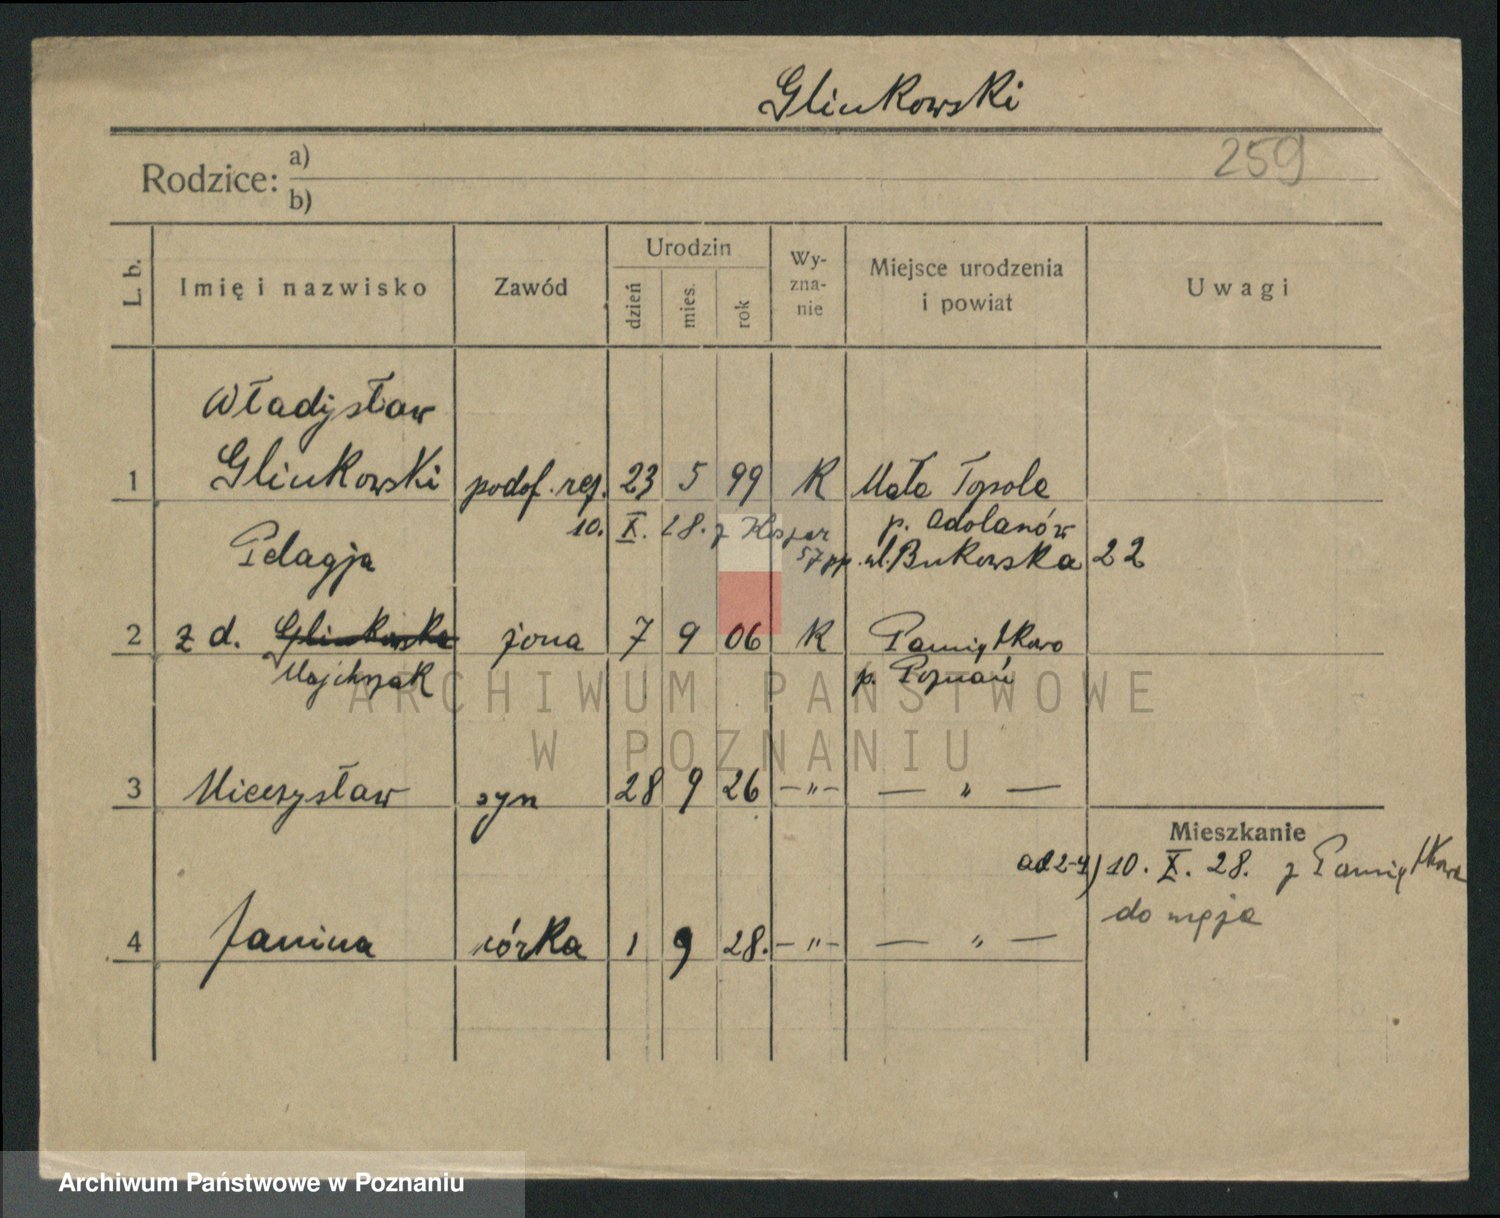 Glinkowski
259
Rodzice: a)
b)
L. b. Imię i nazwisko Zawód Urodzin dzień mies. rok Wy-zna-nie Miejsce urodzenia i powiat Uwagi
Władysław
1 Glinkowski podof. rez. 23 5 99 R Mała Topola
10. X. 28. z Koszar p. Adolanów
57 pp. ul. Bukowska 22
Pelagja
2 z d. Glinkowska żona 7 9 06 R Pamiątkowo
Majchrzak p. Poznań
ARCHIWUM PAŃSTWOWE
W POZNANIU
3 Mieczysław syn 28 9 26 — " — — " —
Mieszkanie
ad 2-4) 10. X. 28. z Pamiątkowa
do męża
4 Janina córka 1 9 28. — " — — " —
Archiwum Państwowe w Poznaniu